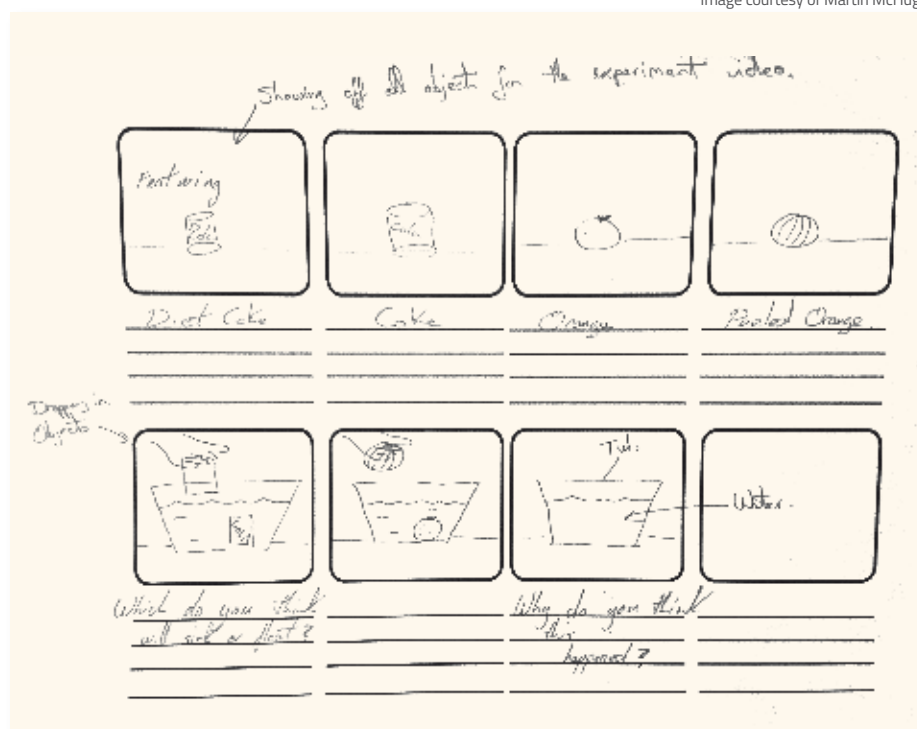 Image courtesy of Martin McHug
Showing off all objects for the experiment video.
Featuring
Diet Coke
Coke
Orange
Peeled Orange
Dropping in
Objects
Tub
Water.
Which do you think
will sink or float?
Why do you think
this
happened?